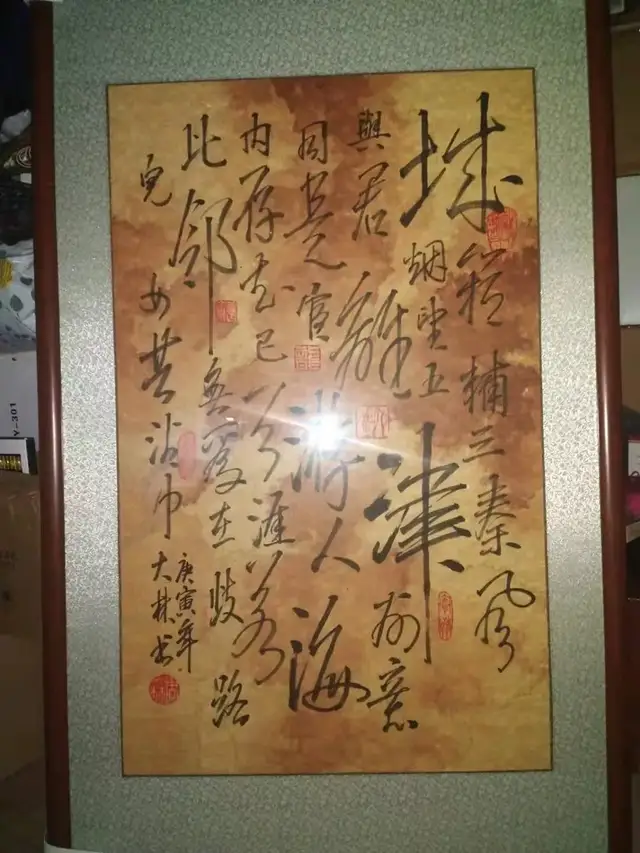 城闕輔三秦風
烟望五津
與君離別意
同是宦游人海
内存知己天涯若
比鄰無爲在歧路
兒女共沾巾
庚寅年
大林书